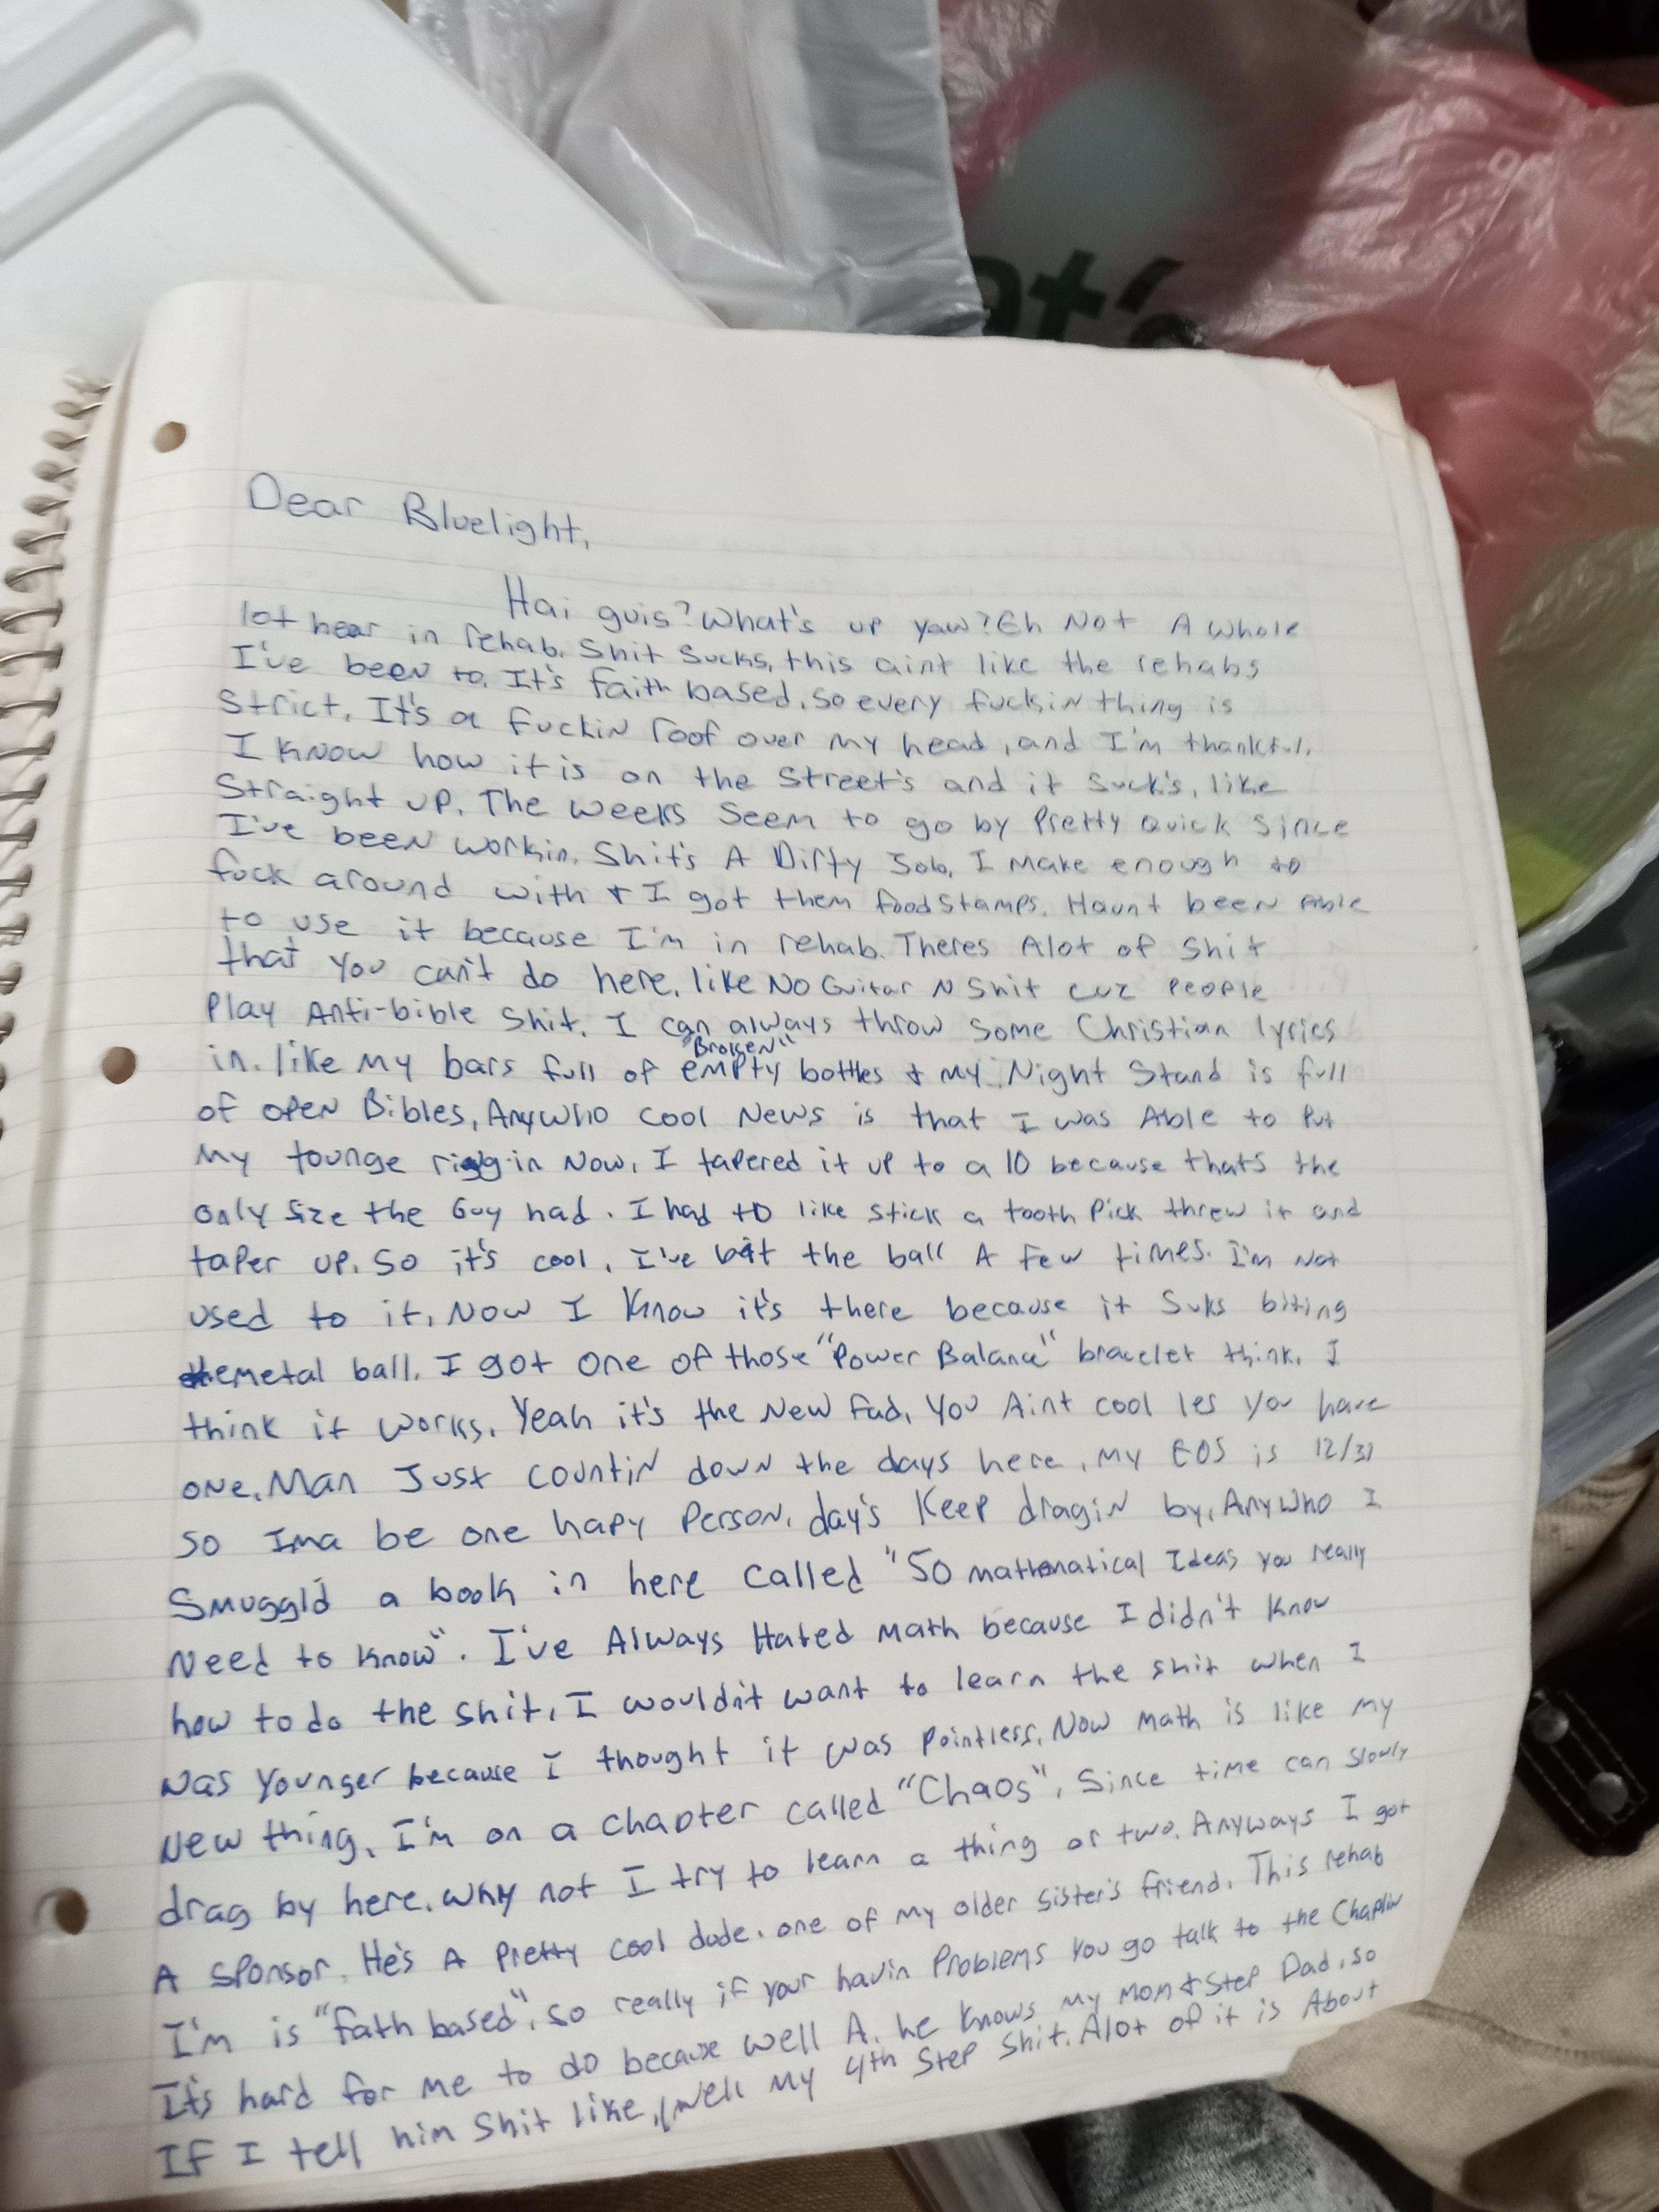 Dear Bluelight,
Hai guis? What's up yaw? Eh Not A whole
lot hear in rehab. Shit Sucks, this aint like the rehabs
I've been to. It's faith based, so every fuckin thing is
Strict. It's a fuckin roof over my head, and I'm thankful.
I know how it is on the Street's and it Suck's, like
Straight up. The weeks Seem to go by Pretty Quick Since
I've been workin. Shit's A Dirty Job, I make enough to
fuck around with & I got them food stamps. Haunt been Able
to use it because I'm in rehab. Theres Alot of Shit
that you can't do here, like No Guitar N Shit cuz People
Play Anti-bible Shit. I can always throw some Christian lyrics
"Broken"
in. like my bars full of empty bottles & my Night Stand is full
of open Bibles, Anywho cool News is that I was Able to Put
My tounge ring in Now, I tapered it up to a 10 because thats the
only size the Guy had. I had to like stick a tooth Pick threw it and
taper up. So it's cool, I've bit the ball A few times. I'm Not
used to it, Now I Know it's there because it Suks biting
the metal ball. I got one of those "Power Balance" bracelet think. I
think it works. Yeah it's the New fad, You Aint cool les you have
one. Man Just countin down the days here, My EOS is 12/31
So Ima be one hapy Person, day's Keep dragin by, AnyWho I
Smuggld a book in here called "50 mathematical Ideas you really
Need to know". I've Always Hated math because I didn't know
how to do the shit, I wouldn't want to learn the shit when I
was younger because I thought it was Pointless, Now math is like my
New thing, I'm on a chapter called "Chaos", Since time can slowly
drag by here. Why not I try to learn a thing or two. Anyways I got
A sponsor. He's A Pretty cool dude. one of my older sister's friend. This rehab
I'm is "fath based", so really if your havin Problems you go talk to the Chaplin
It's hard for me to do because well A. he knows my mom & Step Dad, so
If I tell him Shit like, well My 4th Step Shit. Alot of it is About